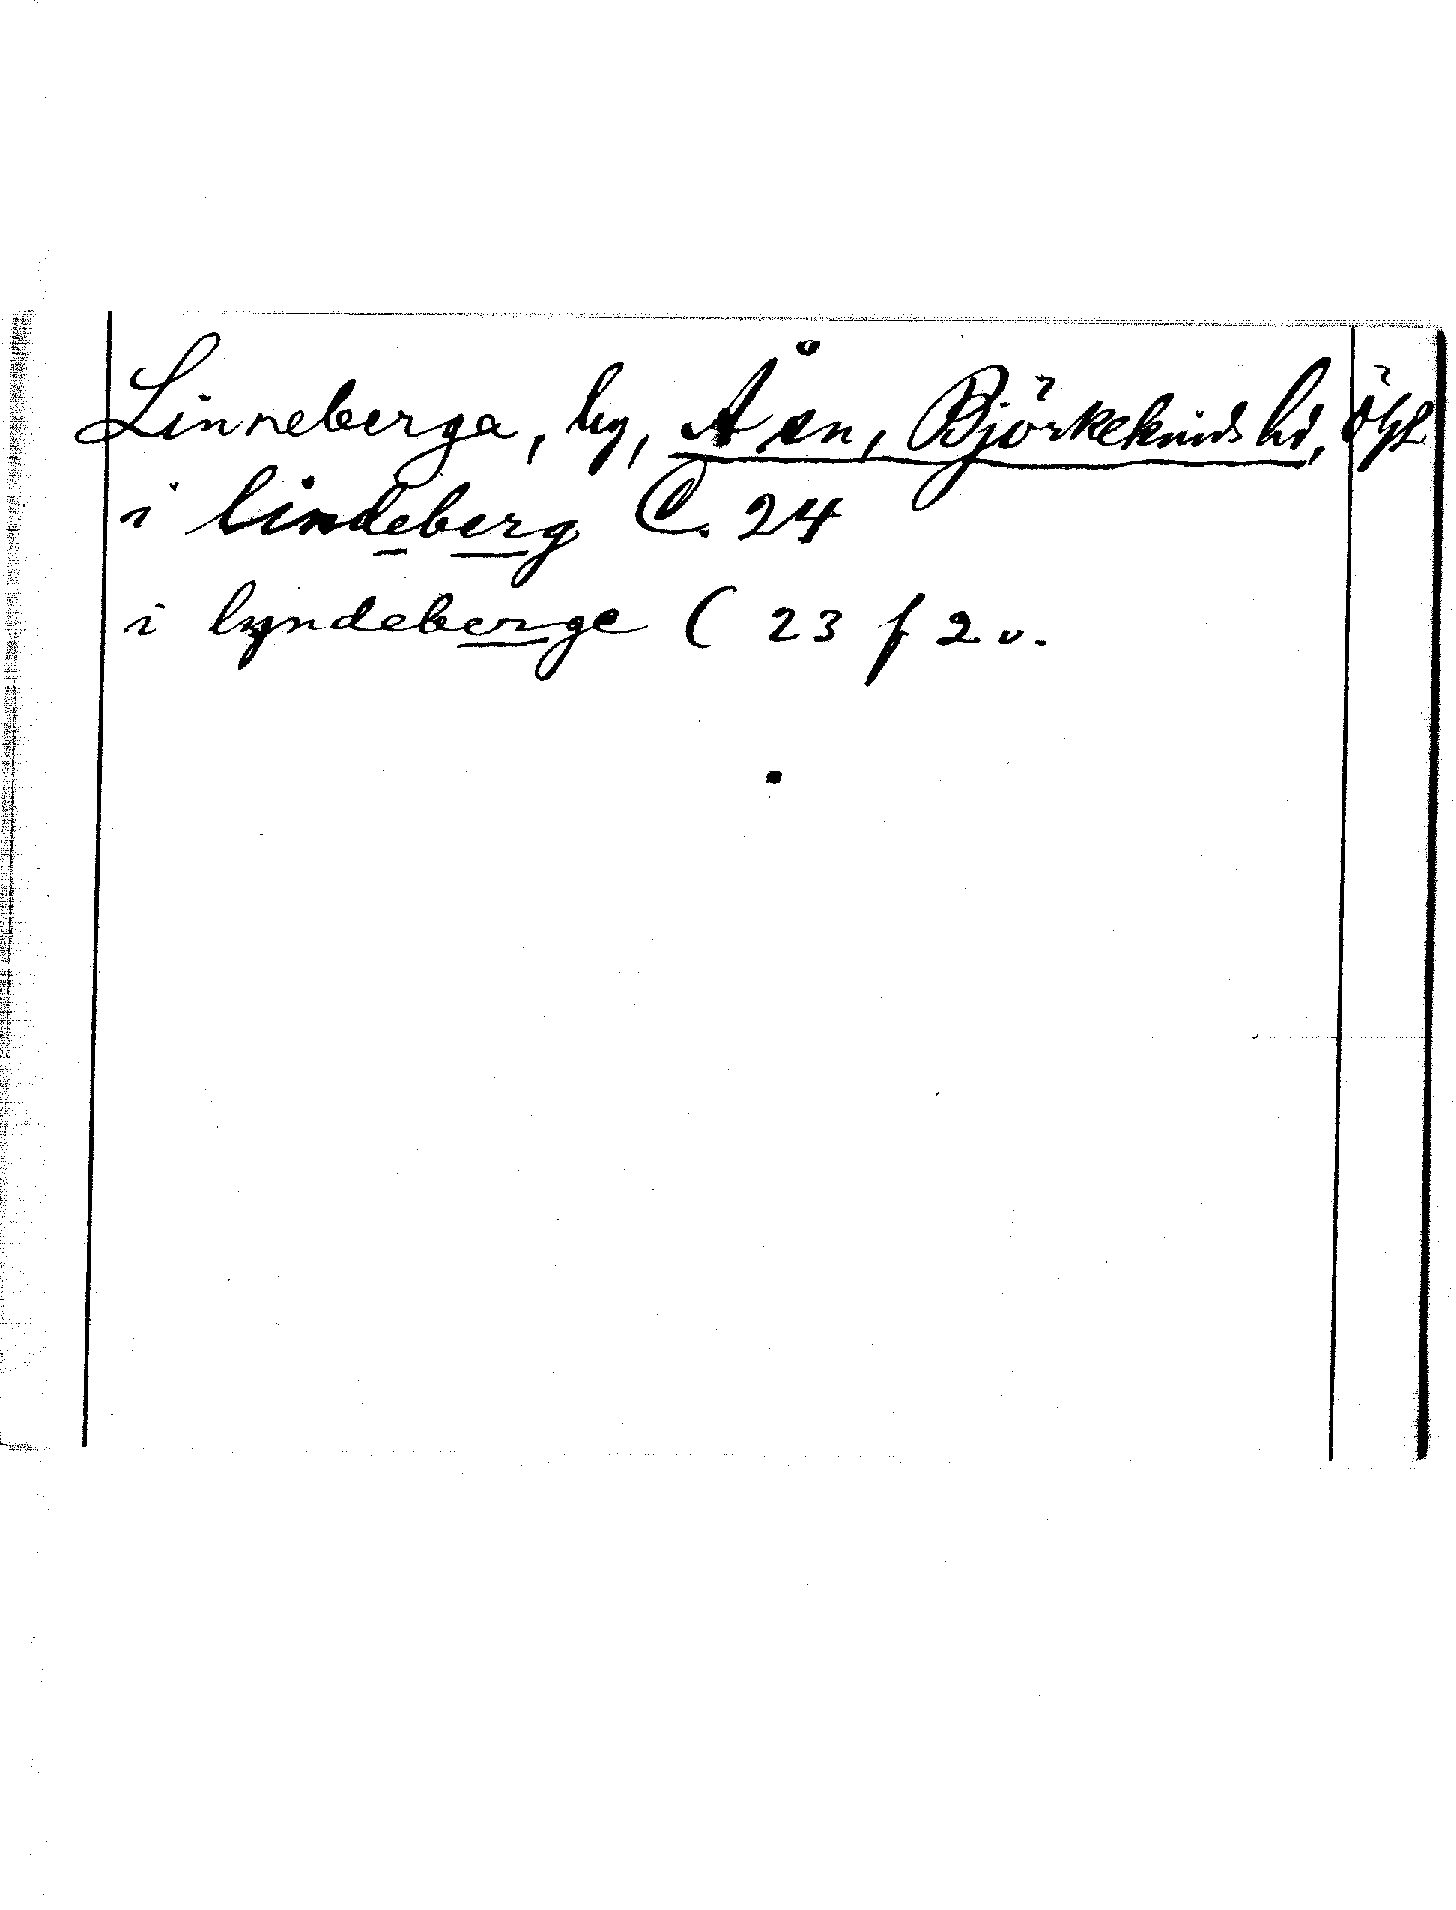 Linneberga, by, Å sn, Björkekinds hd, Ögl
i lindeberg C. 24
i lyndeberge C 23 f 2 v.